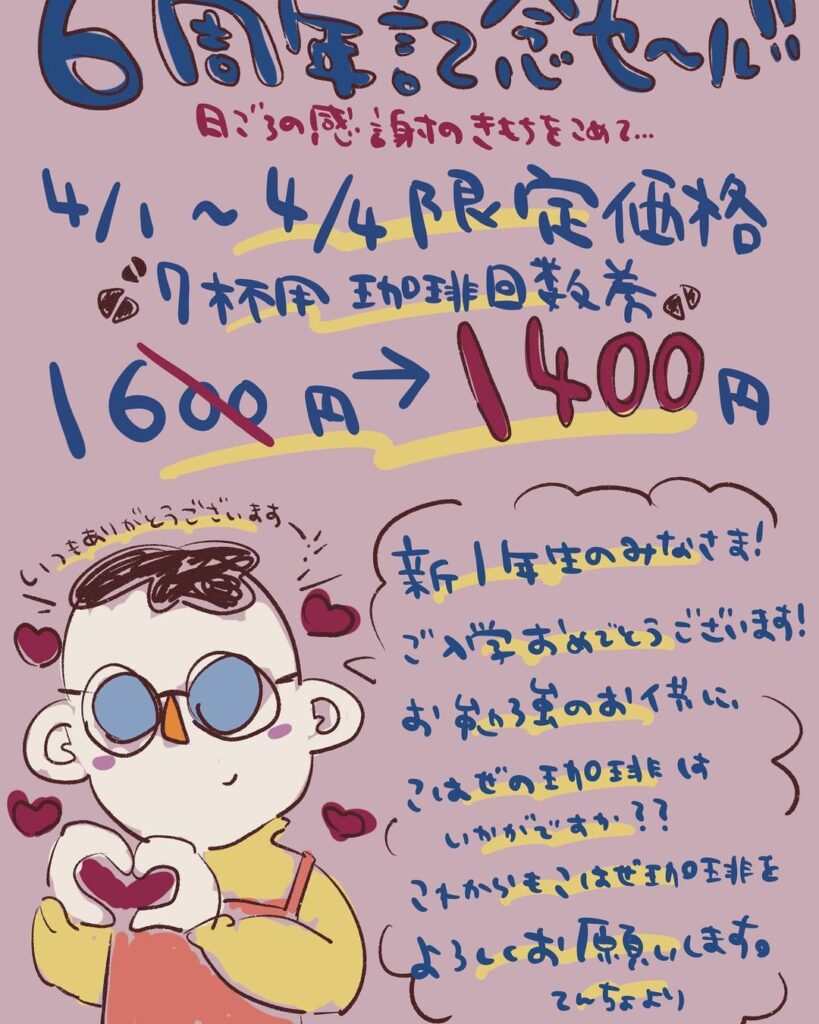 6周年記念セ〜ル!!
日ごろの感謝のきもちをこめて...
4/1〜4/4限定価格
7杯用 珈琲回数券
1600円→1400円
いつもありがとうございます
新1年生のみなさま!
ご入学おめでとうございます!
お勉強のお供に、
こはぜの珈琲は
いかがですか??
これからもこはぜ珈琲を
よろしくお願いします。
てんちょより